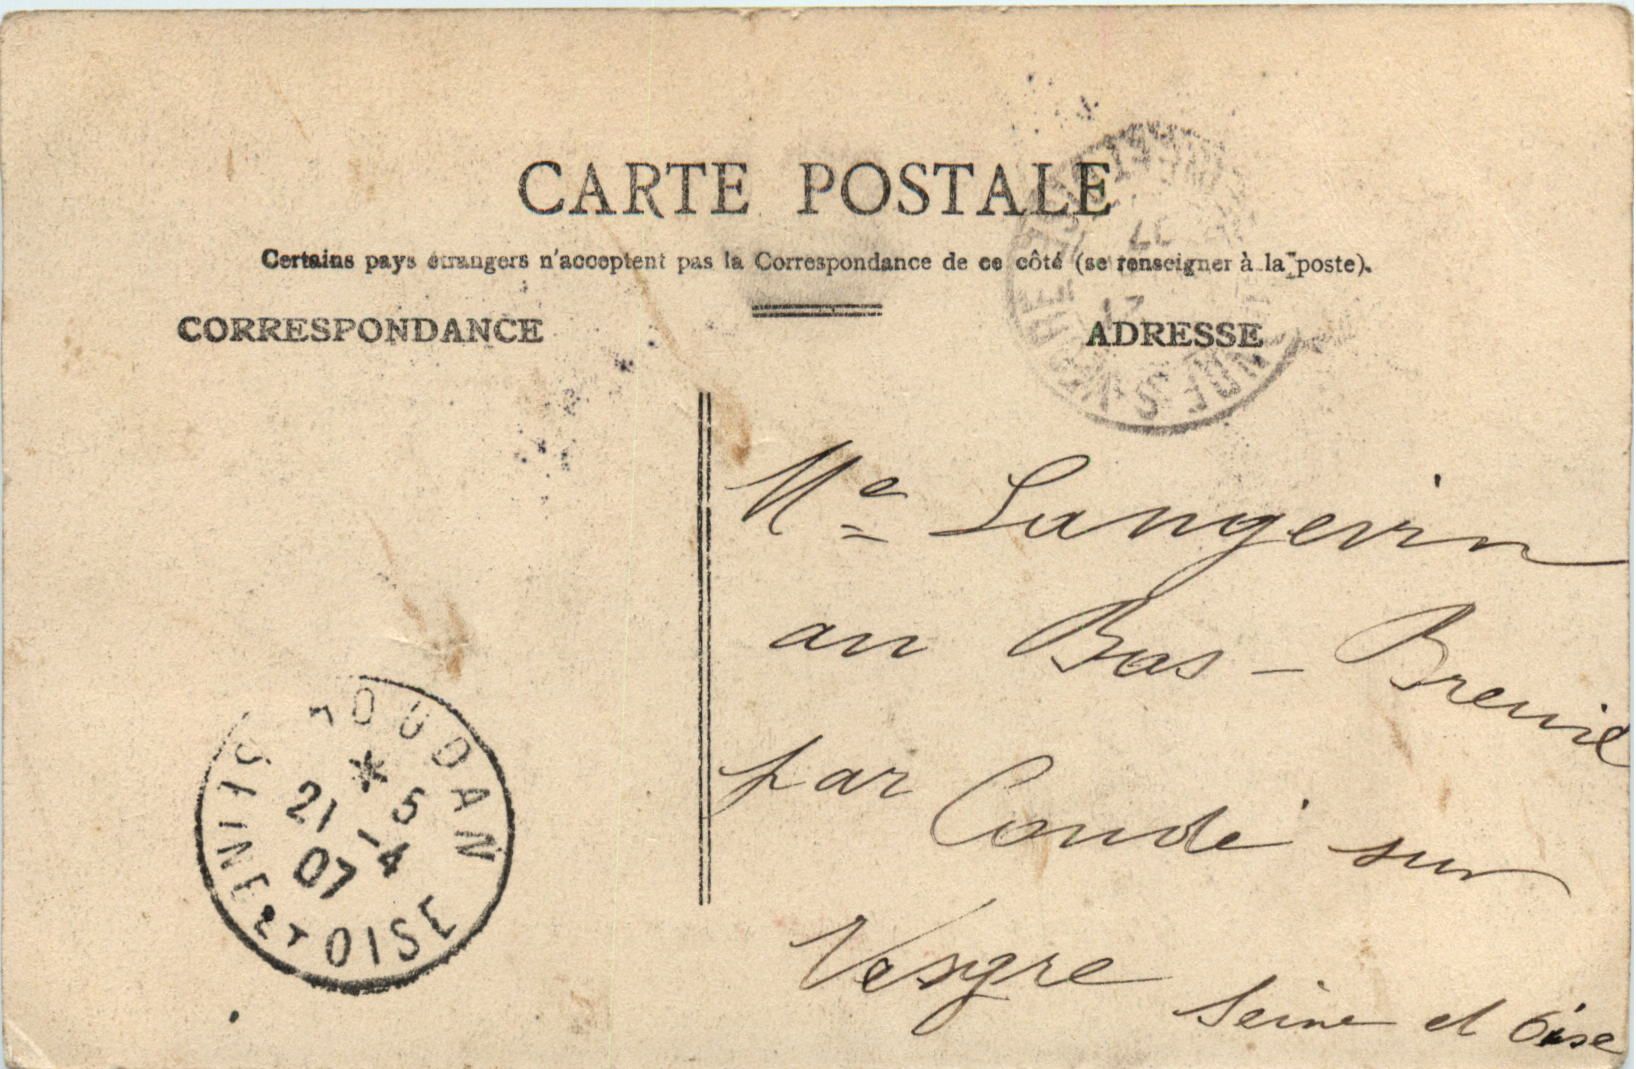 CARTE POSTALE
Certains pays étrangers n'acceptent pas la Correspondance de ce côté (se renseigner à la poste).
CORRESPONDANCE
ADRESSE
Me Langevin
au Bas-Breuil
par Condé sur
Vesgre Seine et Oise
HOUDAN
* 
21 5
07 -4
SEINE ET OISE